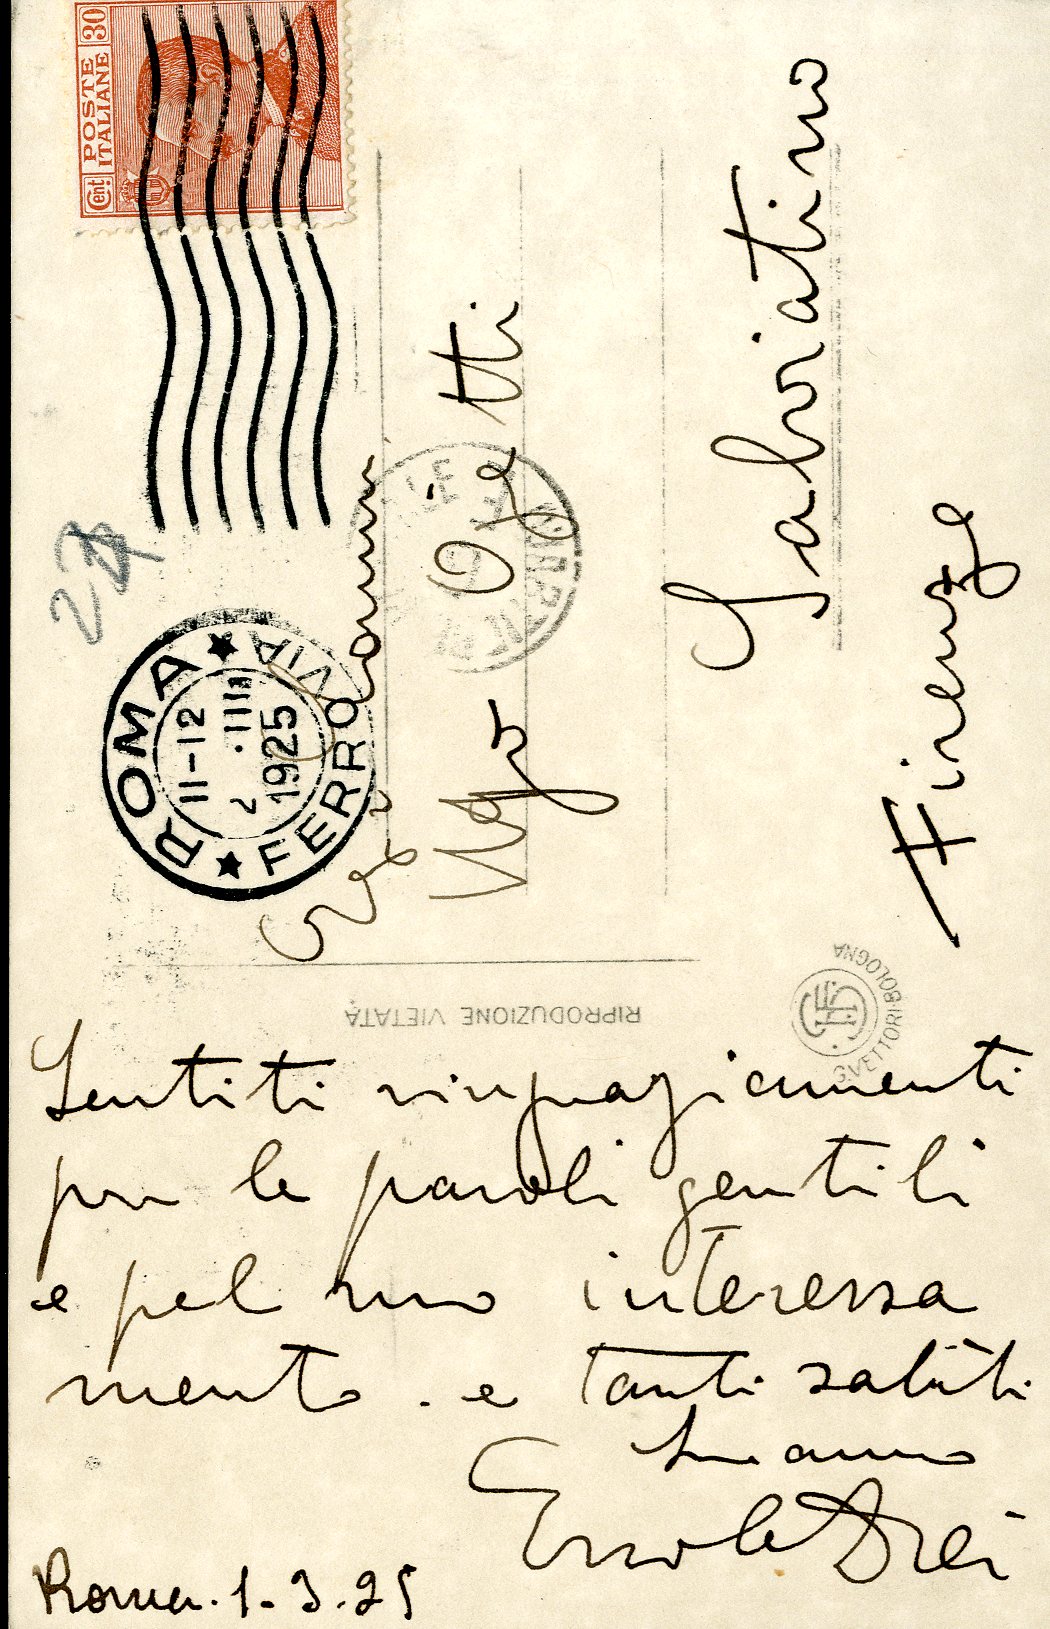 Cent. 30
POSTE
ITALIANE
ROMA
11-12
2 .III
1925
FERROVIA
27
Comm
Ugo Ojetti
Salviatino
Firenze
RIPRODUZIONE VIETATA
G.VETTORI·BOLOGNA
Sentiti ringraziamenti
per le paroli gentili
e pel suo interessa
mento . e tanti saluti
Ercole Drei
Roma. 1-3.25